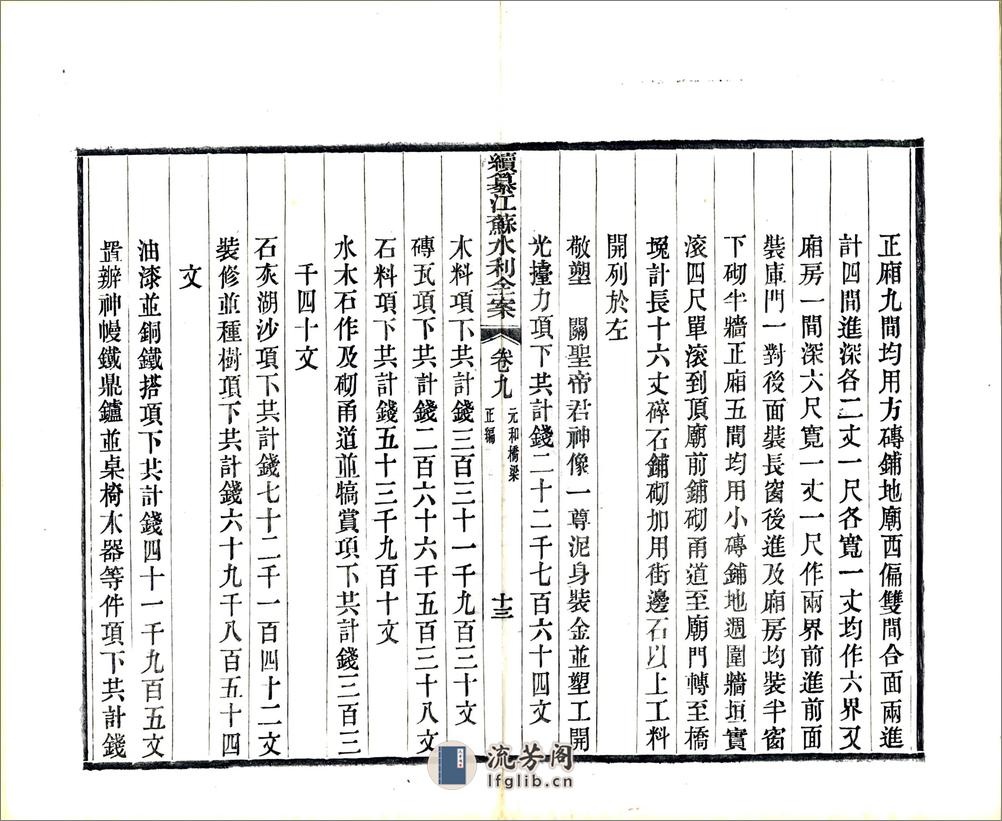 正廂九間均用方磚鋪地廟西偏雙間合面兩進
計四間進深各二丈一尺各寬一丈均作六界又
廂房一間深六尺寬一丈一尺作兩界前進前面
裝庫門一對後面裝長窗後進及廂房均裝半窗
下砌半牆正廂五間均用小磚鋪地週圍牆垣實
滾四尺單滾到頂廟前鋪砌甬道至廟門轉至橋
堍計長十六丈碎石鋪砌加用街邊石以上工料
開列於左
敬塑　關聖帝君神像一尊泥身裝金並塑工開
光擡力項下共計錢二十二千七百六十四文
木料項下共計錢三百三十一千九百三十文
續纂江蘇水利全案
卷九
元和橋梁
正編
十三
磚瓦項下共計錢二百六十六千五百三十八文
石料項下共計錢五十三千九百十文
水木石作及砌甬道並犒賞項下共計錢三百三
千四十文
石灰湖沙項下共計錢七十二千一百四十二文
裝修並種樹項下共計錢六十九千八百五十四
文
油漆並銅鐵搭項下共計錢四十一千九百五文
置辦神幔鐵鼎鑪並桌椅木器等件項下共計錢
流芳阁
lfglib.cn